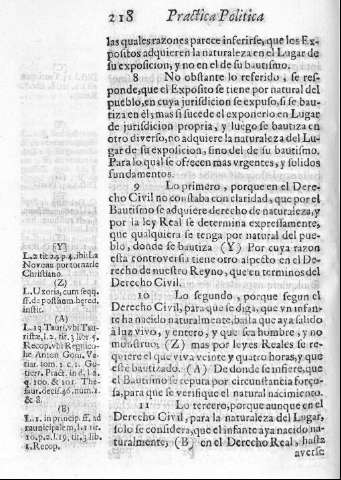 218 Practica Politica
las quales razones parece inferirse, que los Ex-
positos adquieren la naturaleza en el Lugar de
su exposicion, y no en el de su bautismo.
8 No obstante lo referido, se res-
ponde, que el Exposito se tiene por natural del
pueblo, en cuya jurisdicion se expuso, si se bau-
tiza en èl; mas si sucede el exponerlo en Lugar
de jurisdicion propria, y luego se bautiza en
otro diverso, no adquiere la naturaleza del Lu-
gar de su exposicion, sino del de su bautismo.
Para lo qual se ofrecen mas vrgentes, y solidos
fundamentos.
9 Lo primero, porque en el Dere-
cho Civil no constaba con claridad, que por el
Bautismo se adquiere derecho de naturaleza, y
por la ley Real se determina expressamente,
que qualquiera se tenga por natural del pue-
blo, donde se bautiza (Y) Por cuya razon
esta controversia tiene otro aspecto en el Dere-
cho de nuestro Reyno, que en terminos del
Derecho Civil.
10 Lo segundo, porque segun el
Derecho Civil, para que se diga, que vn infan-
te ha nacido naturalmente, basta que aya salido
à luz vivo, y entero, y que sea hombre, y no
monstruo; (Z) mas por leyes Reales se re-
quiere el que viva veinte y quatro horas, y que
estè bautizado. (A) De donde se infiere, que
el Bautismo se reputa por circunstancia forço-
sa, para que se verifique el natural nacimiento.
11 Lo tercero, porque aunque en el
Derecho Civil, para la naturaleza del Lugar,
solo se considera, que el infante aya nacido na-
turalmente, (B) en el Derecho Real, hasta
averse
(Y)
L. 2 tit. 24 p. 4. ibi: La
Novena por tornarle
Christiano.
(Z)
L. Uxoris, cum seqq.
ff. de posthum. hered.
instit.
(A)
L. 13 Tauri, vbi Tau-
ristæ, l. 2. tit. 3 libr 5.
Recop. vbi Regnico-
he Anton Gom. Va-
riar. tom. 1 c. 1. Gu-
tierr. Pract. in d. l. 2
q. 100. & 101 The-
saur. decis. 46. num. 1.
& 8.
(B)
L. 1. in princip. ff. ad
municipalem, l. 1 tit.
10. p. 2. l. 19, tit. 3 lib.
1. Recop.